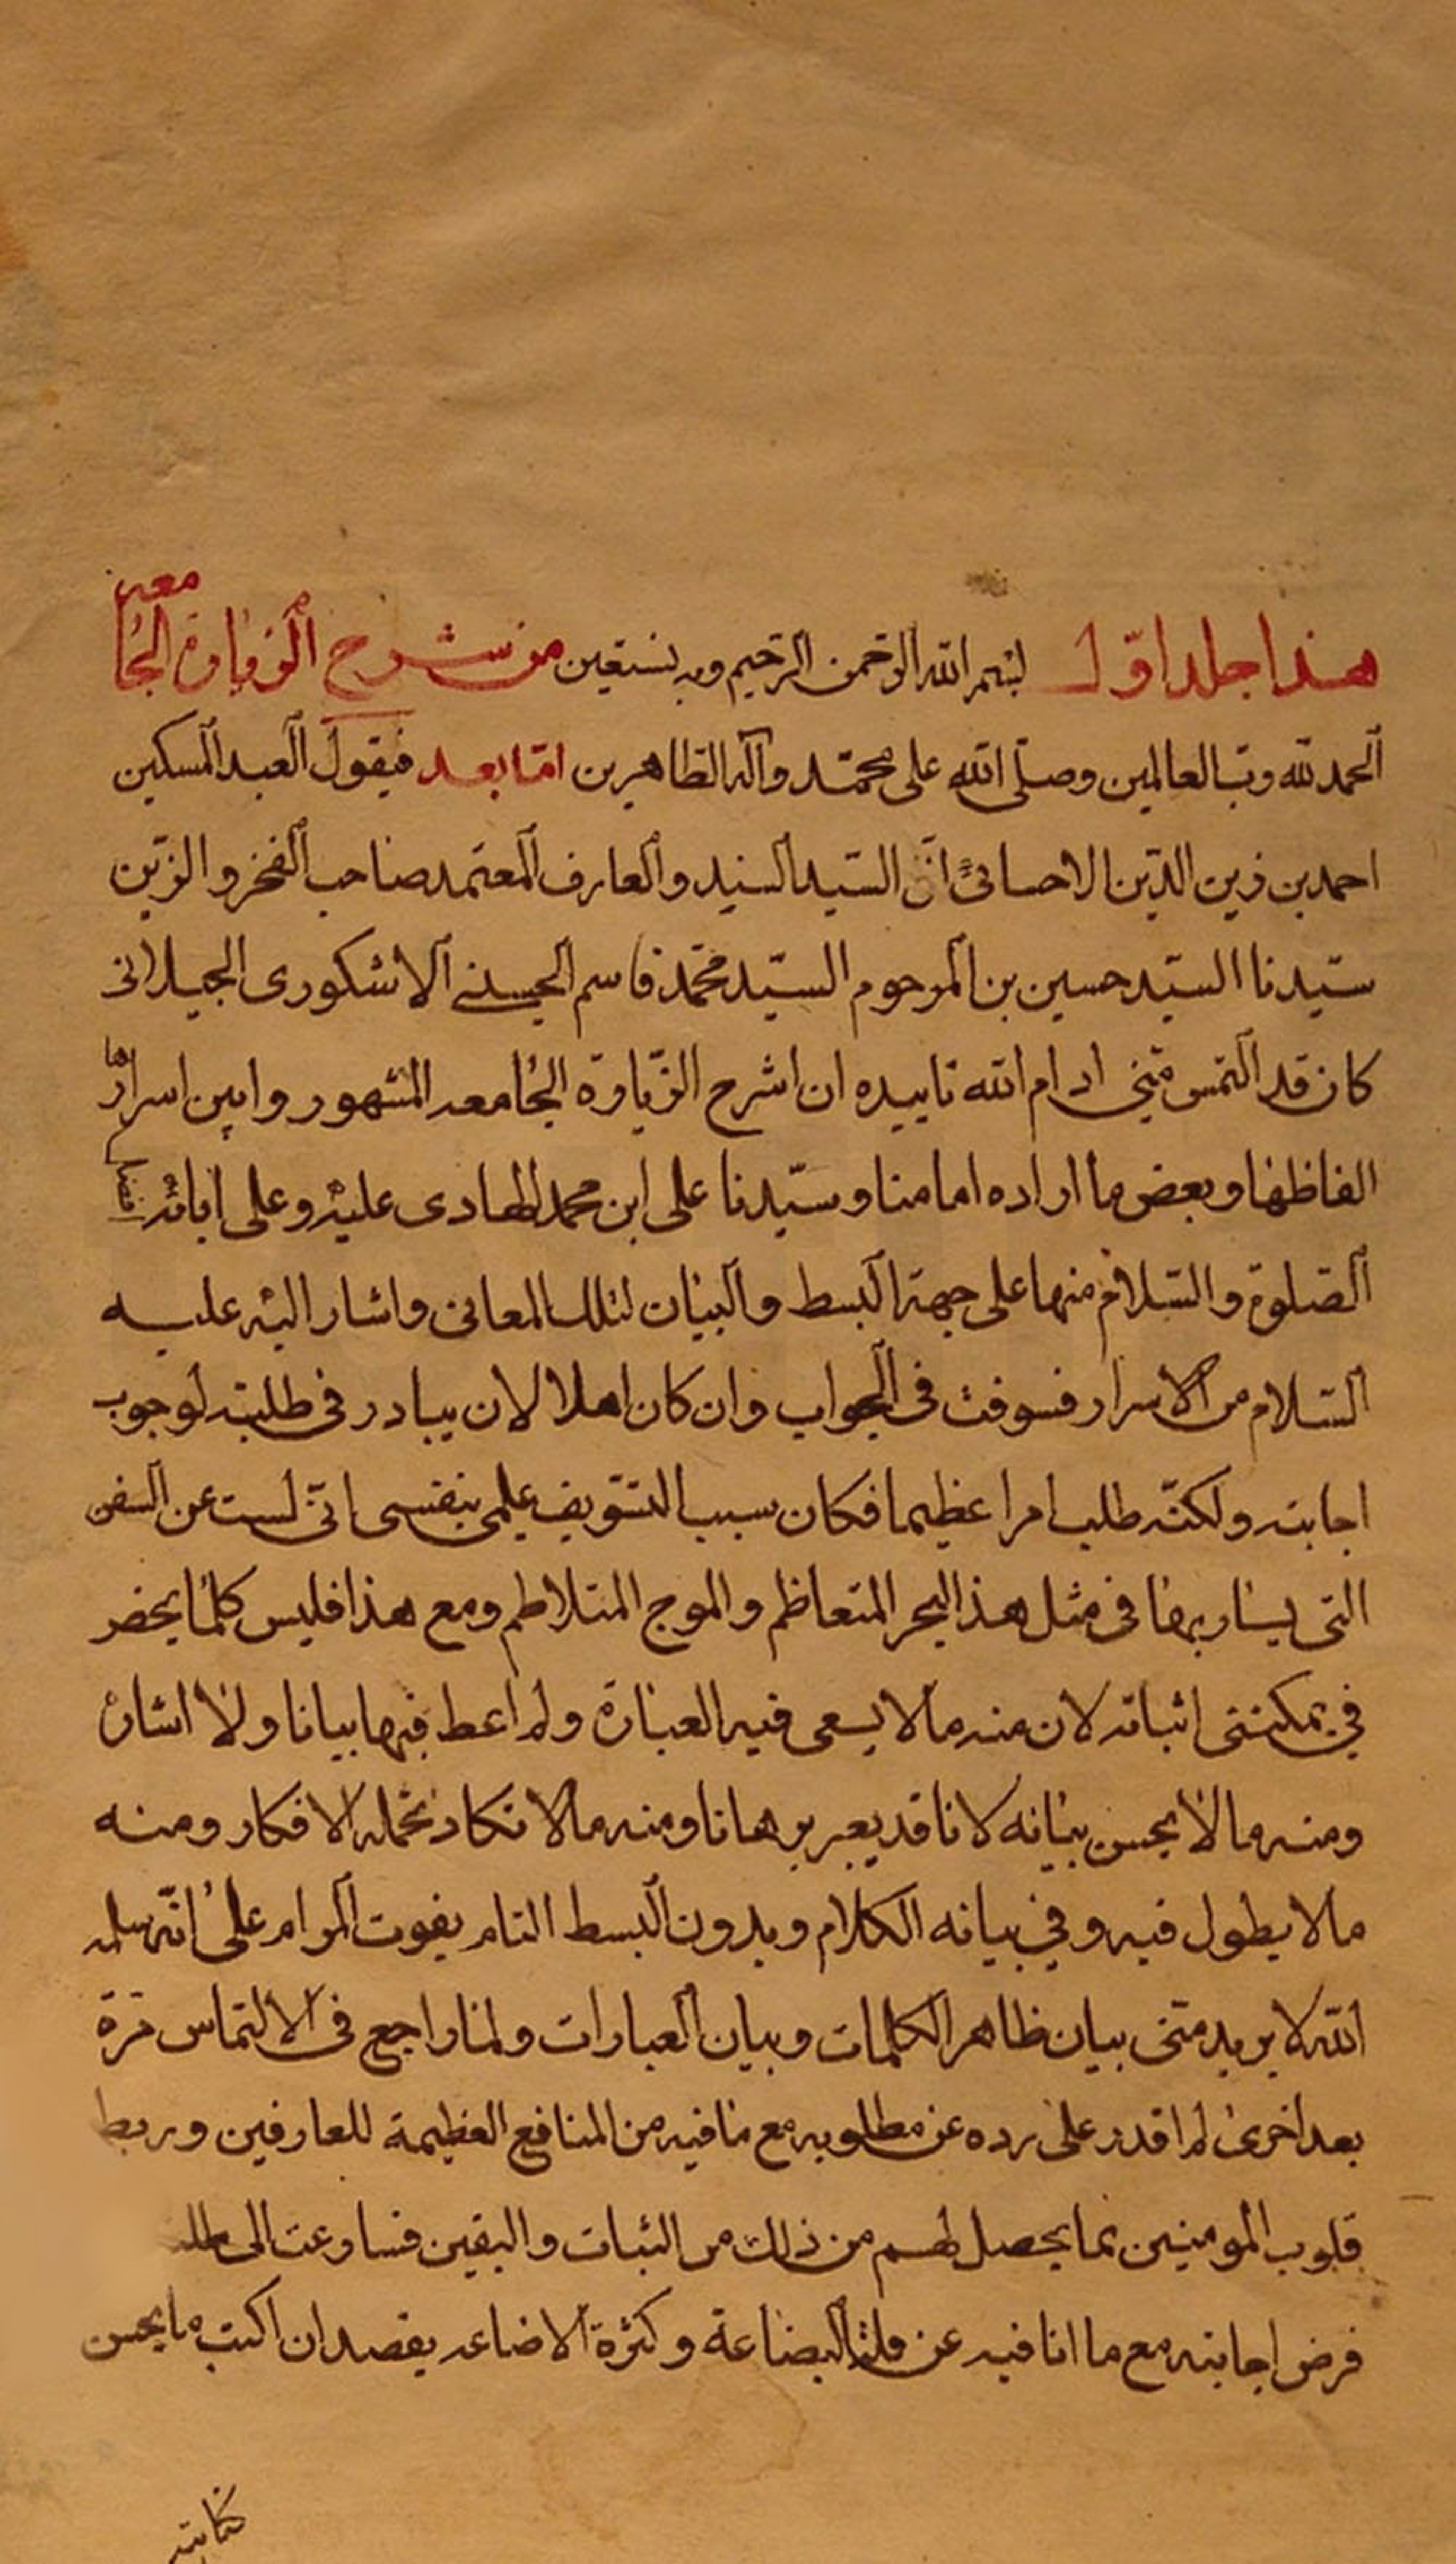 هذا جلد اوّل بسم الله الرحمن الرحيم وبه نستعين من شرح الزيارة الجامعه
الحمد لله رب العالمين وصلّى الله على محمّد وآله الطاهرين امّا بعد فيقول العبد المسكين
احمد بن زين الدّين الاحسائى انّ السّيد السنيد والعارف المعتمد صاحب الفخر والزّين
سيّدنا السيّد حسين بن المرحوم السيّد محمّد قاسم الحسينى الاشكورى الجيلانى
كان قد التمس منّى ادام الله تاييده ان اشرح الزّيارة الجامعه المشهور وابين اسرارها
الفاظها وبعض ما اراده امامنا وسيّدنا على ابن محمد الهادى عليه وعلى ابائه
الصلوة والسّلام منها على جهة البسط والبيان لتلك المعانى واشار اليه عليه
السّلام من الاسرار فسوفت فى الجواب وان كان اهلا لان يبادر فى طلبته لوجوب
اجابته ولكنّه طلب امرا عظيما فكان سبب التسّويف علمى بنفسى انّى لست عن السفن
التى يسار بها فى مثل هذا البحر المتعاظم والموج المتلاطم ومع هذا فليس كلما يحضر
فى يمكننى اثباته لان منه ما لا يسعى فيه العبارة ولم اعط فيها بيانا ولا اشارة
ومنه ما لا يحسن بيانه لانا قد يعبر برهانا ومنه ما لا تكاد تحمله الافكار ومنه
ما لا يطول فيه وفى بيانه الكلام وبدون البسط التام يفوت المرام على انّه سلمه
الله لا يريد منّى بيان ظاهر الكلمات وبيان العبارات ولما راجع فى الالتماس مرة
بعد اخرى لم اقدر على رده عن مطلوبه مع ما فيه من المنافع العظيمة للعارفين وربط
قلوب المومنين بما يحصل لهم من ذلك من الثبات واليقين فسارعت الى
فرض اجابته مع ما انا فيه عن قلة البضاعة وكثرة الاضاعه بقصد ان اكتب ما يحسن
كتابته